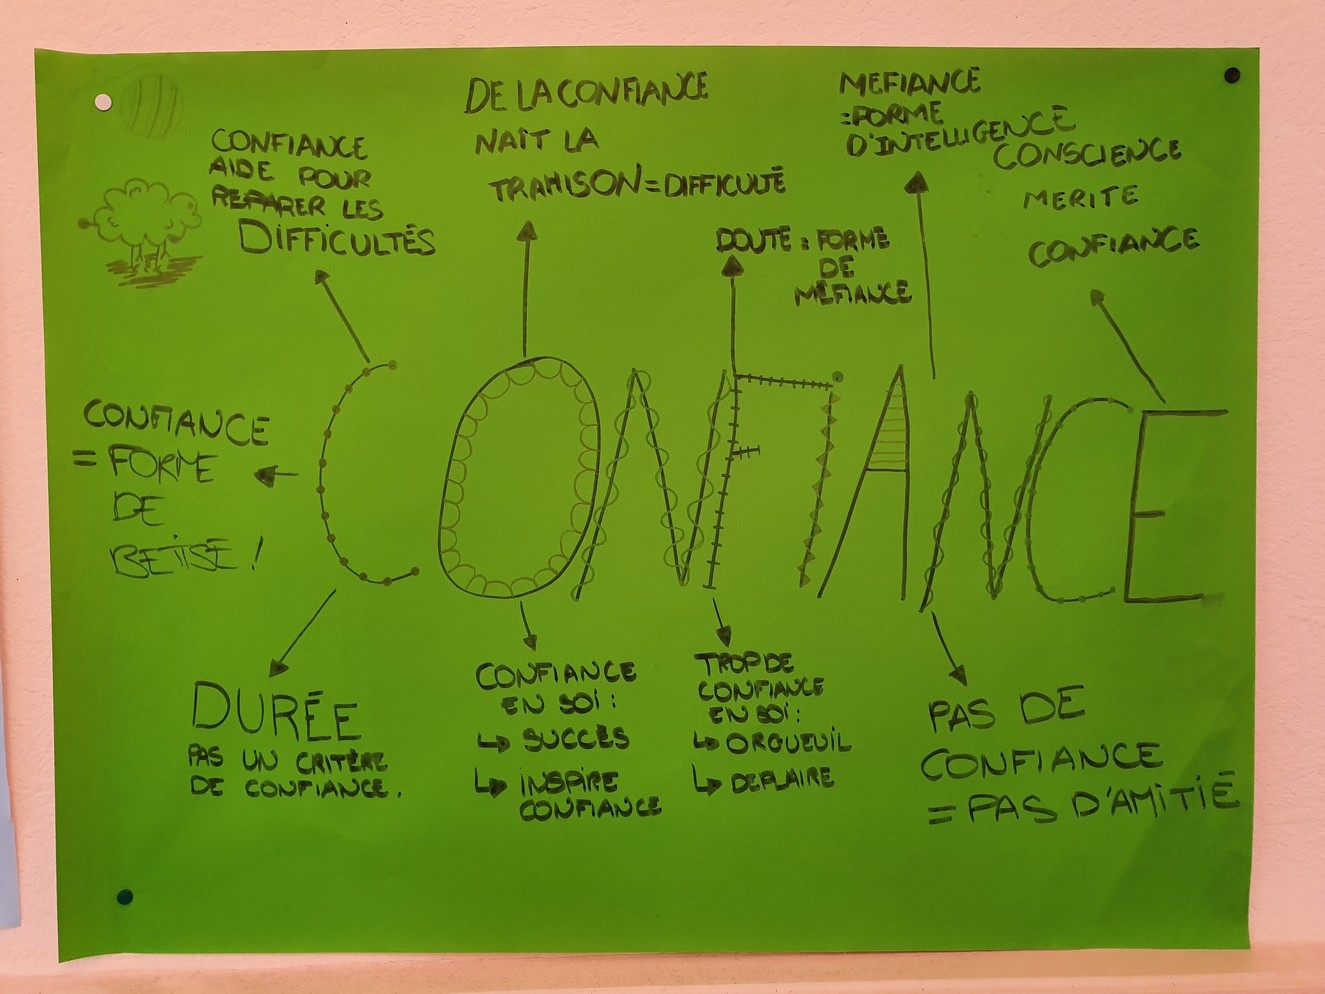 CONFIANCE
AIDE POUR
REPARER LES
DIFFICULTÉS
DE LA CONFIANCE
NAIT LA
TRAHISON = DIFFICULTÉ
DOUTE : FORME
DE
MÉFIANCE
MEFIANCE
= FORME
D'INTELLIGENCE
CONSCIENCE
MERITE
CONFIANCE
CONFIANCE
= FORME
DE
BETISE !
CONFIANCE
DURÉE
PAS UN CRITÈRE
DE CONFIANCE.
CONFIANCE
EN SOI :
↳ SUCCÈS
↳ INSPIRE
CONFIANCE
TROP DE
CONFIANCE
EN SOI :
↳ ORGUEUIL
↳ DEPLAIRE
PAS DE
CONFIANCE
= PAS D'AMITIÉ